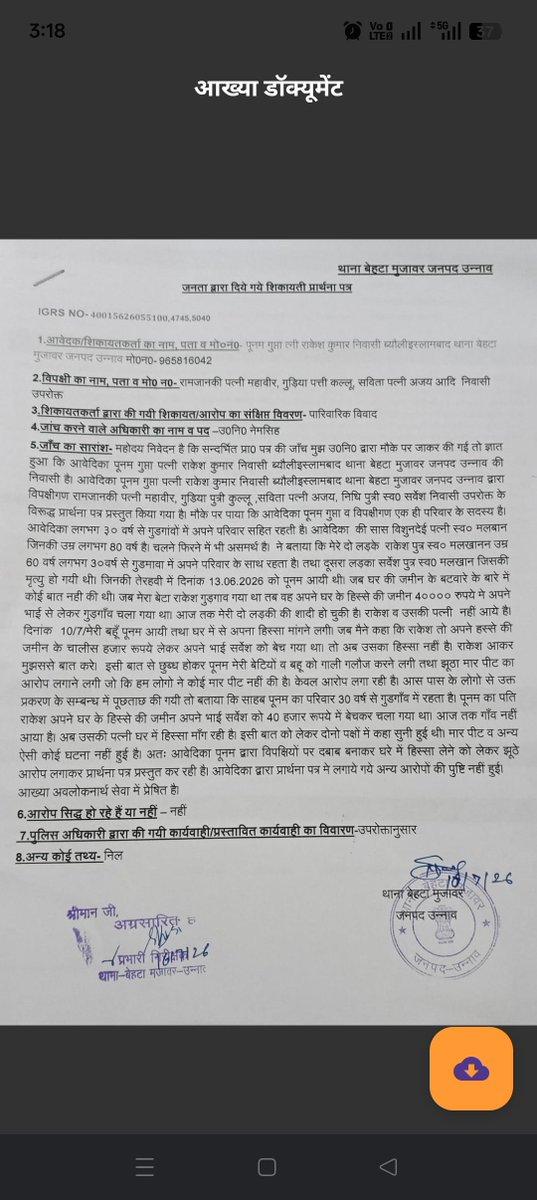 3:18
Vo LTE2
5G
37
आख्या डॉक्यूमेंट
थाना बेहटा मुजावर जनपद उन्नाव
जनता द्वारा दिये गये शिकायती प्रार्थना पत्र
IGRS NO- 40015626055100,4745,5040
1.आवेदक/शिकायतकर्ता का नाम, पता व मो०न०- पूनम गुप्ता त्नी राकेश कुमार निवासी ब्यौलीइस्लामबाद थाना बेहटा
मुजावर जनपद उन्नाव मो0न0- 965816042
2.विपक्षी का नाम, पता व मो0 न0- रामजानकी पत्नी महावीर, गुड़िया पत्ती कल्लू, सविता पत्नी अजय आदि निवासी
उपरोक्त
3.शिकायतकर्ता द्वारा की गयी शिकायत/आरोप का संक्षिप्त विवरण- पारिवारिक विवाद
4.जांच करने वाले अधिकारी का नाम व पद –उ0नि0 नेमसिह
5.जाँच का सारांश- महोदय निवेदन है कि सन्दर्भित प्रा0 पत्र की जाँच मुझ उ0नि0 द्वारा मौके पर जाकर की गई तो ज्ञात
हुआ कि आवेदिका पूनम गुप्ता पत्नी राकेश कुमार निवासी ब्यौलीइस्लामबाद थाना बेहटा मुजावर जनपद उन्नाव की
निवासी है। आवेदिका पूनम गुप्ता पत्नी राकेश कुमार निवासी ब्यौलीइस्लामबाद थाना बेहटा मुजावर जनपद उन्नाव द्वारा
विपक्षीगण रामजानकी पत्नी महावीर, गुडिया पुत्री कुल्लू ,सविता पत्नी अजय, निधि पुत्री स्व0 सर्वेश निवासी उपरोक्त के
विरूद्ध प्रार्थना पत्र प्रस्तुत किया गया है। मौके पर पाया कि आवेदिका पूनम गुप्ता व विपक्षीगण एक ही परिवार के सदस्य है।
आवेदिका लगभग ३० वर्ष से गुडगांवों में अपने परिवार सहित रहती है। आवेदिका की सास विशुनदेई पत्नी स्व० मलबान
जिनकी उम्र लगभग 80 वर्ष है। चलने फिरने में भी असमर्थ है। ने बताया कि मेरे दो लड़के राकेश पुत्र स्व० मलखानन उम्र
60 वर्ष लगभग 3०वर्ष से गुडमावा में अपने परिवार के साथ रहता है। तथा दूसरा लड़का सर्वेश पुत्र स्व0 मलखान जिसकी
मृत्यु हो गयी थी। जिनकी तेरहवी में दिनांक 13.06.2026 को पूनम आयी थी। जब घर की जमीन के बटवारे के बारे में
कोई बात नही की थी। जब मेरा बेटा राकेश गुडगाव गया था तब वह अपने घर के हिस्से की जमीन 4०००० रुपये मे अपने
भाई से लेकर गुडगाँव चला गया था। आज तक मेरी दो लडकी की शादी हो चुकी है। राकेश व उसकी पत्नी नहीं आये है।
दिनांक 10/7/मेरी बहूँ पूनम आयी तथा घर में से अपना हिस्सा मांगने लगी। जब मैने कहा कि राकेश तो अपने हस्से की
जमीन के चालीस हजार रूपये लेकर अपने भाई सर्वेश को बेच गया था। तो अब उसका हिस्सा नहीं है। राकेश आकर
मुझससे बात करे। इसी बात से छुब्ध होकर पूनम मेरी बेटियों व बहू को गाली गलौज करने लगी तथा झूठा मार पीट का
आरोप लगाने लगी जो कि हम लोगो ने कोई मार पीट नहीं की है। केवल आरोप लगा रही है। आस पास के लोगो से उक्त
प्रकरण के सम्बन्ध में पूछताछ की गयी तो बताया कि साहब पूनम का परिवार 30 वर्ष से गुडगाँव में रहता है। पूनम का पति
राकेश अपने घर के हिस्से की जमीन अपने भाई सर्वेश को 40 हजार रूपये में बेचकर चला गया था। आज तक गाँव नहीं
आया है। अब उसकी पत्नी घर में हिस्सा माँग रही है। इसी बात को लेकर दोनो पक्षों में कहा सुनी हुई थी। मार पीट व अन्य
ऐसी कोई घटना नहीं हुई है। अतः आवेदिका पूनम द्वारा विपक्षियों पर दबाब बनाकर घरे में हिस्सा लेने को लेकर झूठे
आरोप लगाकर प्रार्थना पत्र प्रस्तुत कर रही है। आवेदिका द्वारा प्रार्थना पत्र मे लगाये गये अन्य आरोपों की पुष्टि नहीं हुई।
आख्या अवलोकनार्थ सेवा में प्रेषित है।
6.आरोप सिद्ध हो रहे हैं या नहीं – नहीं
7.पुलिस अधिकारी द्वारा की गयी कार्यवाही/प्रस्तावित कार्यवाही का विवारण-उपरोक्तानुसार
8.अन्य कोई तथ्य- निल
10/7/26
थाना बेहटा मुजावर
जनपद उन्नाव
थाना बेहटा मुजावर
जनपद–उन्नाव
श्रीमान जी,
अग्रसारित
प्रभारी निरीक्षक
थाना–बेहटा मुजावर-उन्नाव